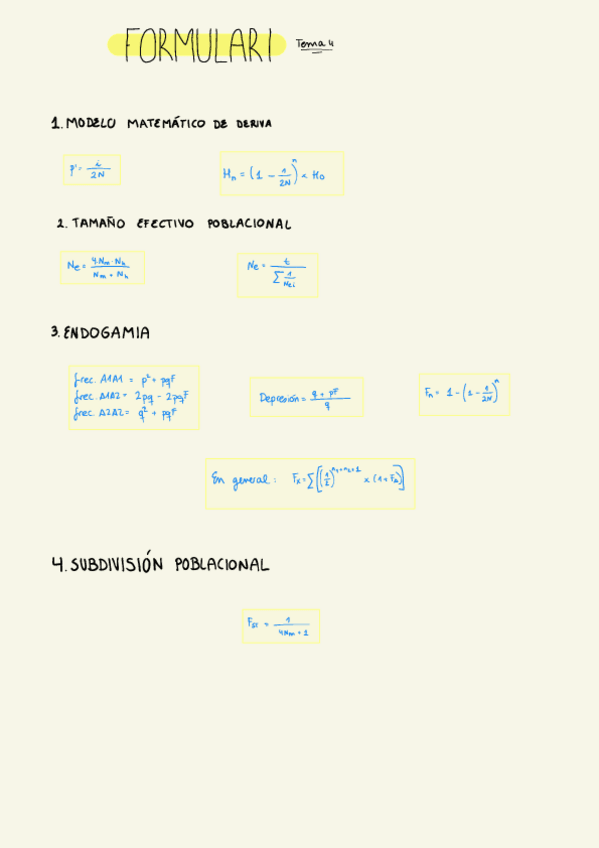 FORMULARI Tema 4
1. MODELO MATEMÁTICO DE DERIVA
p' = i / 2N
Hn = (1 - 1/2N)^n × H0
2. TAMAÑO EFECTIVO POBLACIONAL
Ne = 4·Nm·Nh / Nm + Nh
Ne = t / ∑ 1/Nei
3. ENDOGAMIA
frec. A1A1 = p² + pqF
frec. A1A2 = 2pq - 2pqF
frec. A2A2 = q² + pqF
Depresión = q + pF / q
Fn = 1 - (1 - 1/2N)^n
En general: Fx = ∑[(1/2)^n1+n2+1 × (1+FA)]
4. SUBDIVISIÓN POBLACIONAL
FST = 1 / 4Nm + 1